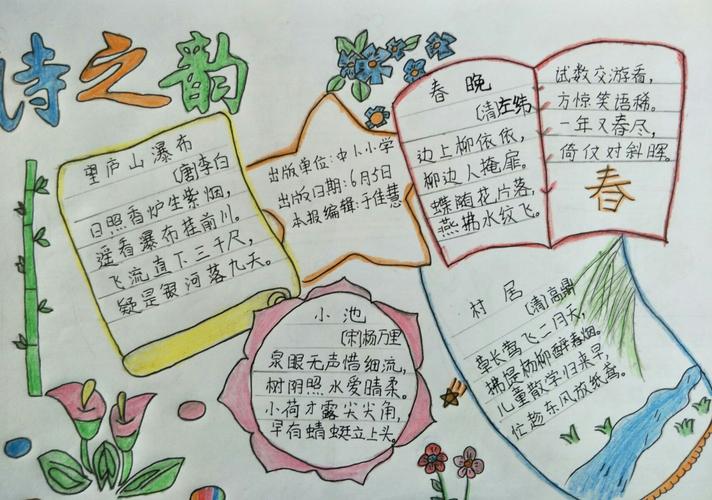 诗之韵
望庐山瀑布
[唐]李白
日照香炉生紫烟,
遥看瀑布挂前川。
飞流直下三千尺,
疑是银河落九天。
出版单位:中小学
出版日期:6月5日
本报编辑:于佳慧
春晚
[清]左纬
边上柳依依,
柳边人掩扉。
蝶随花片落,
燕拂水纹飞。
试数交游看,
方惊笑语稀。
一年又春尽,
倚仗对斜晖。
春
小池
[宋]杨万里
泉眼无声惜细流,
树阴照水爱晴柔。
小荷才露尖尖角,
早有蜻蜓立上头。
村居
[清]高鼎
草长莺飞二月天,
拂堤杨柳醉春烟。
儿童散学归来早,
忙趁东风放纸鸢。